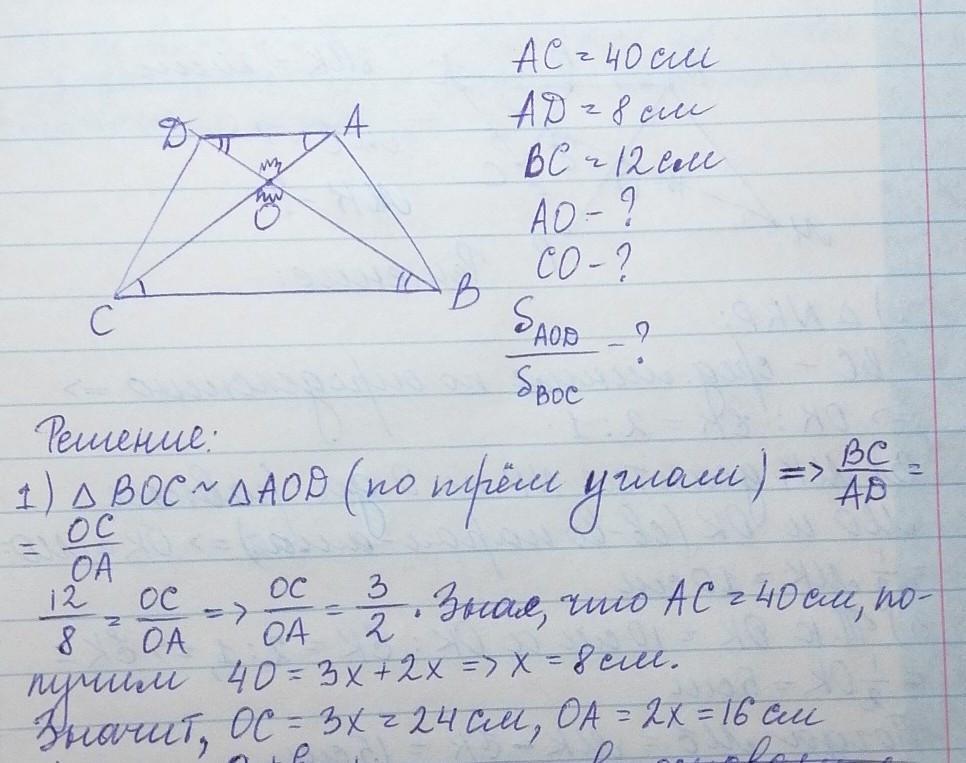 AC = 40 см
AD = 8 см
BC = 12 см
AO - ?
CO - ?
S_AOD / S_BOC - ?
D A
O
C B
Решение:
1) △ BOC ~ △ AOD (по трём углам) => BC/AD =
= OC/OA
12/8 = OC/OA => OC/OA = 3/2. Зная, что AC = 40 см, по-
лучим 40 = 3x + 2x => x = 8 см.
Значит, OC = 3x = 24 см, OA = 2x = 16 см